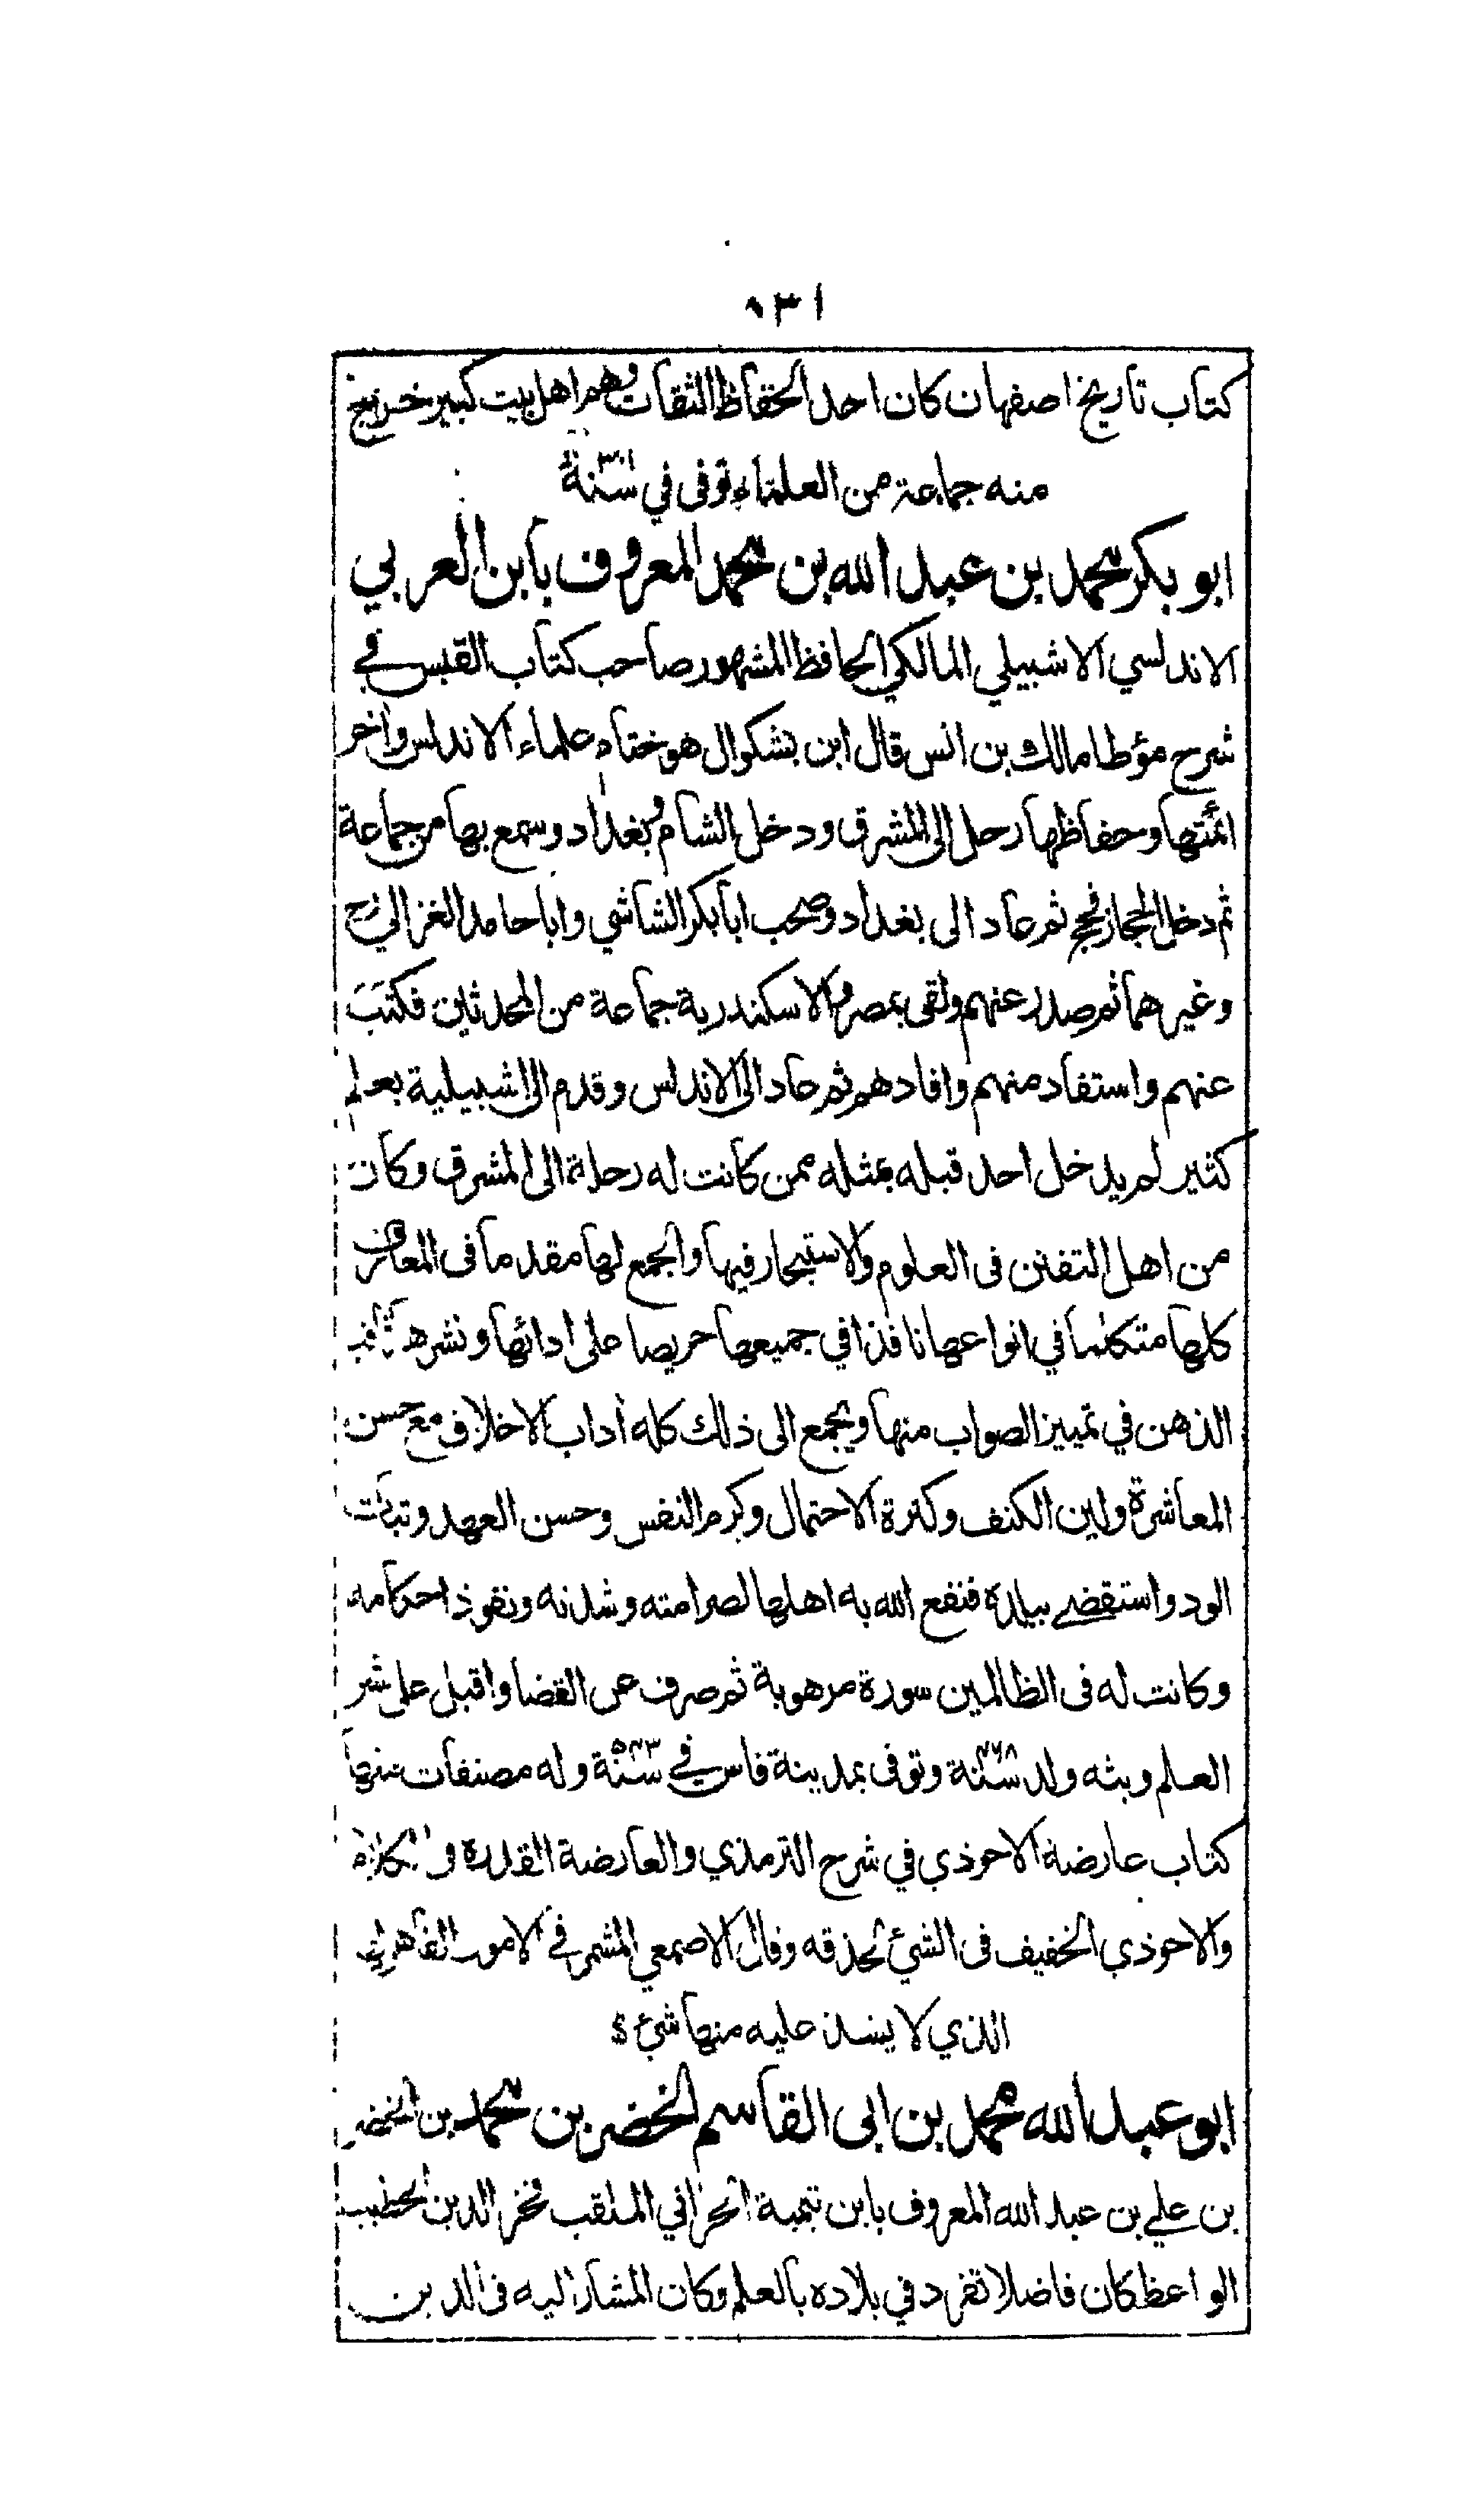 ١٣٠
كتاب تاريخ اصفهان كان احد الحفاظ الثقات وهم اهل بيت كبير خرج
منه جماعة من العلماء توفى في سنة ٣٠١
ابو بكر محمد بن عبد الله بن محمد المعروف بابن العربي
الاندلسي الاشبيلي المالكي الحافظ المشهور صاحب كتاب القبس في
شرح مؤطا مالك بن انس قال ابن بشكوال هو ختام علماء الاندلس وآخر
ائمتها وحفاظها رحل الى المشرق ودخل الشام وبغداد وسمع بها من جماعة
ثم دخل الحجاز فحج ثم عاد الى بغداد وصحب ابا بكر الشاشي وابا حامد الغزالي رح
وغيرهما ثم صدر عنهم ولقى بمصر والاسكندرية جماعة من المحدثين فكتب
عنهم واستفاد منهم وافادهم ثم عاد الى الاندلس وقدم الى اشبيلية بعلم
كثير لم يدخل احد قبله بمثله ممن كانت له رحلة الى المشرق وكان
من اهل التفنن فى العلوم والاستبحار فيها والجمع لها مقدما فى المعارف
كلها متكلما في انواعها نافذا في جميعها حريصا على ادائها ونشرها ثاقب
الذهن في تمييز الصواب منها ويجمع الى ذلك كله آداب الاخلاق مع حسن
المعاشرة ولين الكنف وكثرة الاحتمال وكرم النفس وحسن العهد وثبات
الود واستقضے ببلده فنفع الله به اهلها لصرامته وشدته ونفوذ احكامه
وكانت له فى الظالمين سورة مرهوبة ثم صرف عن القضا واقبل على نشر
العلم وبثه ولد سنة ٤٦٨ وتوفى بمدينة فاس في سنة ٥٤٣ وله مصنفات منها
كتاب عارضة الاحوذي في شرح الترمذي والعارضة القدرة
والاحوذي الخفيف فى الشئ لحذقه وقال الاصمعي المشمر في الامور القاهر لها
الذي لا يشذ عليه منها شئ
ابو عبد الله محمد بن ابى القاسم الخضر بن محمد بن الخضر
بن علي بن عبد الله المعروف بابن تيمية الحراني الملقب فخر الدين الخطيب
الواعظ كان فاضلا تفرد في بلاده بالعلم وكان المشار اليه فى الدين